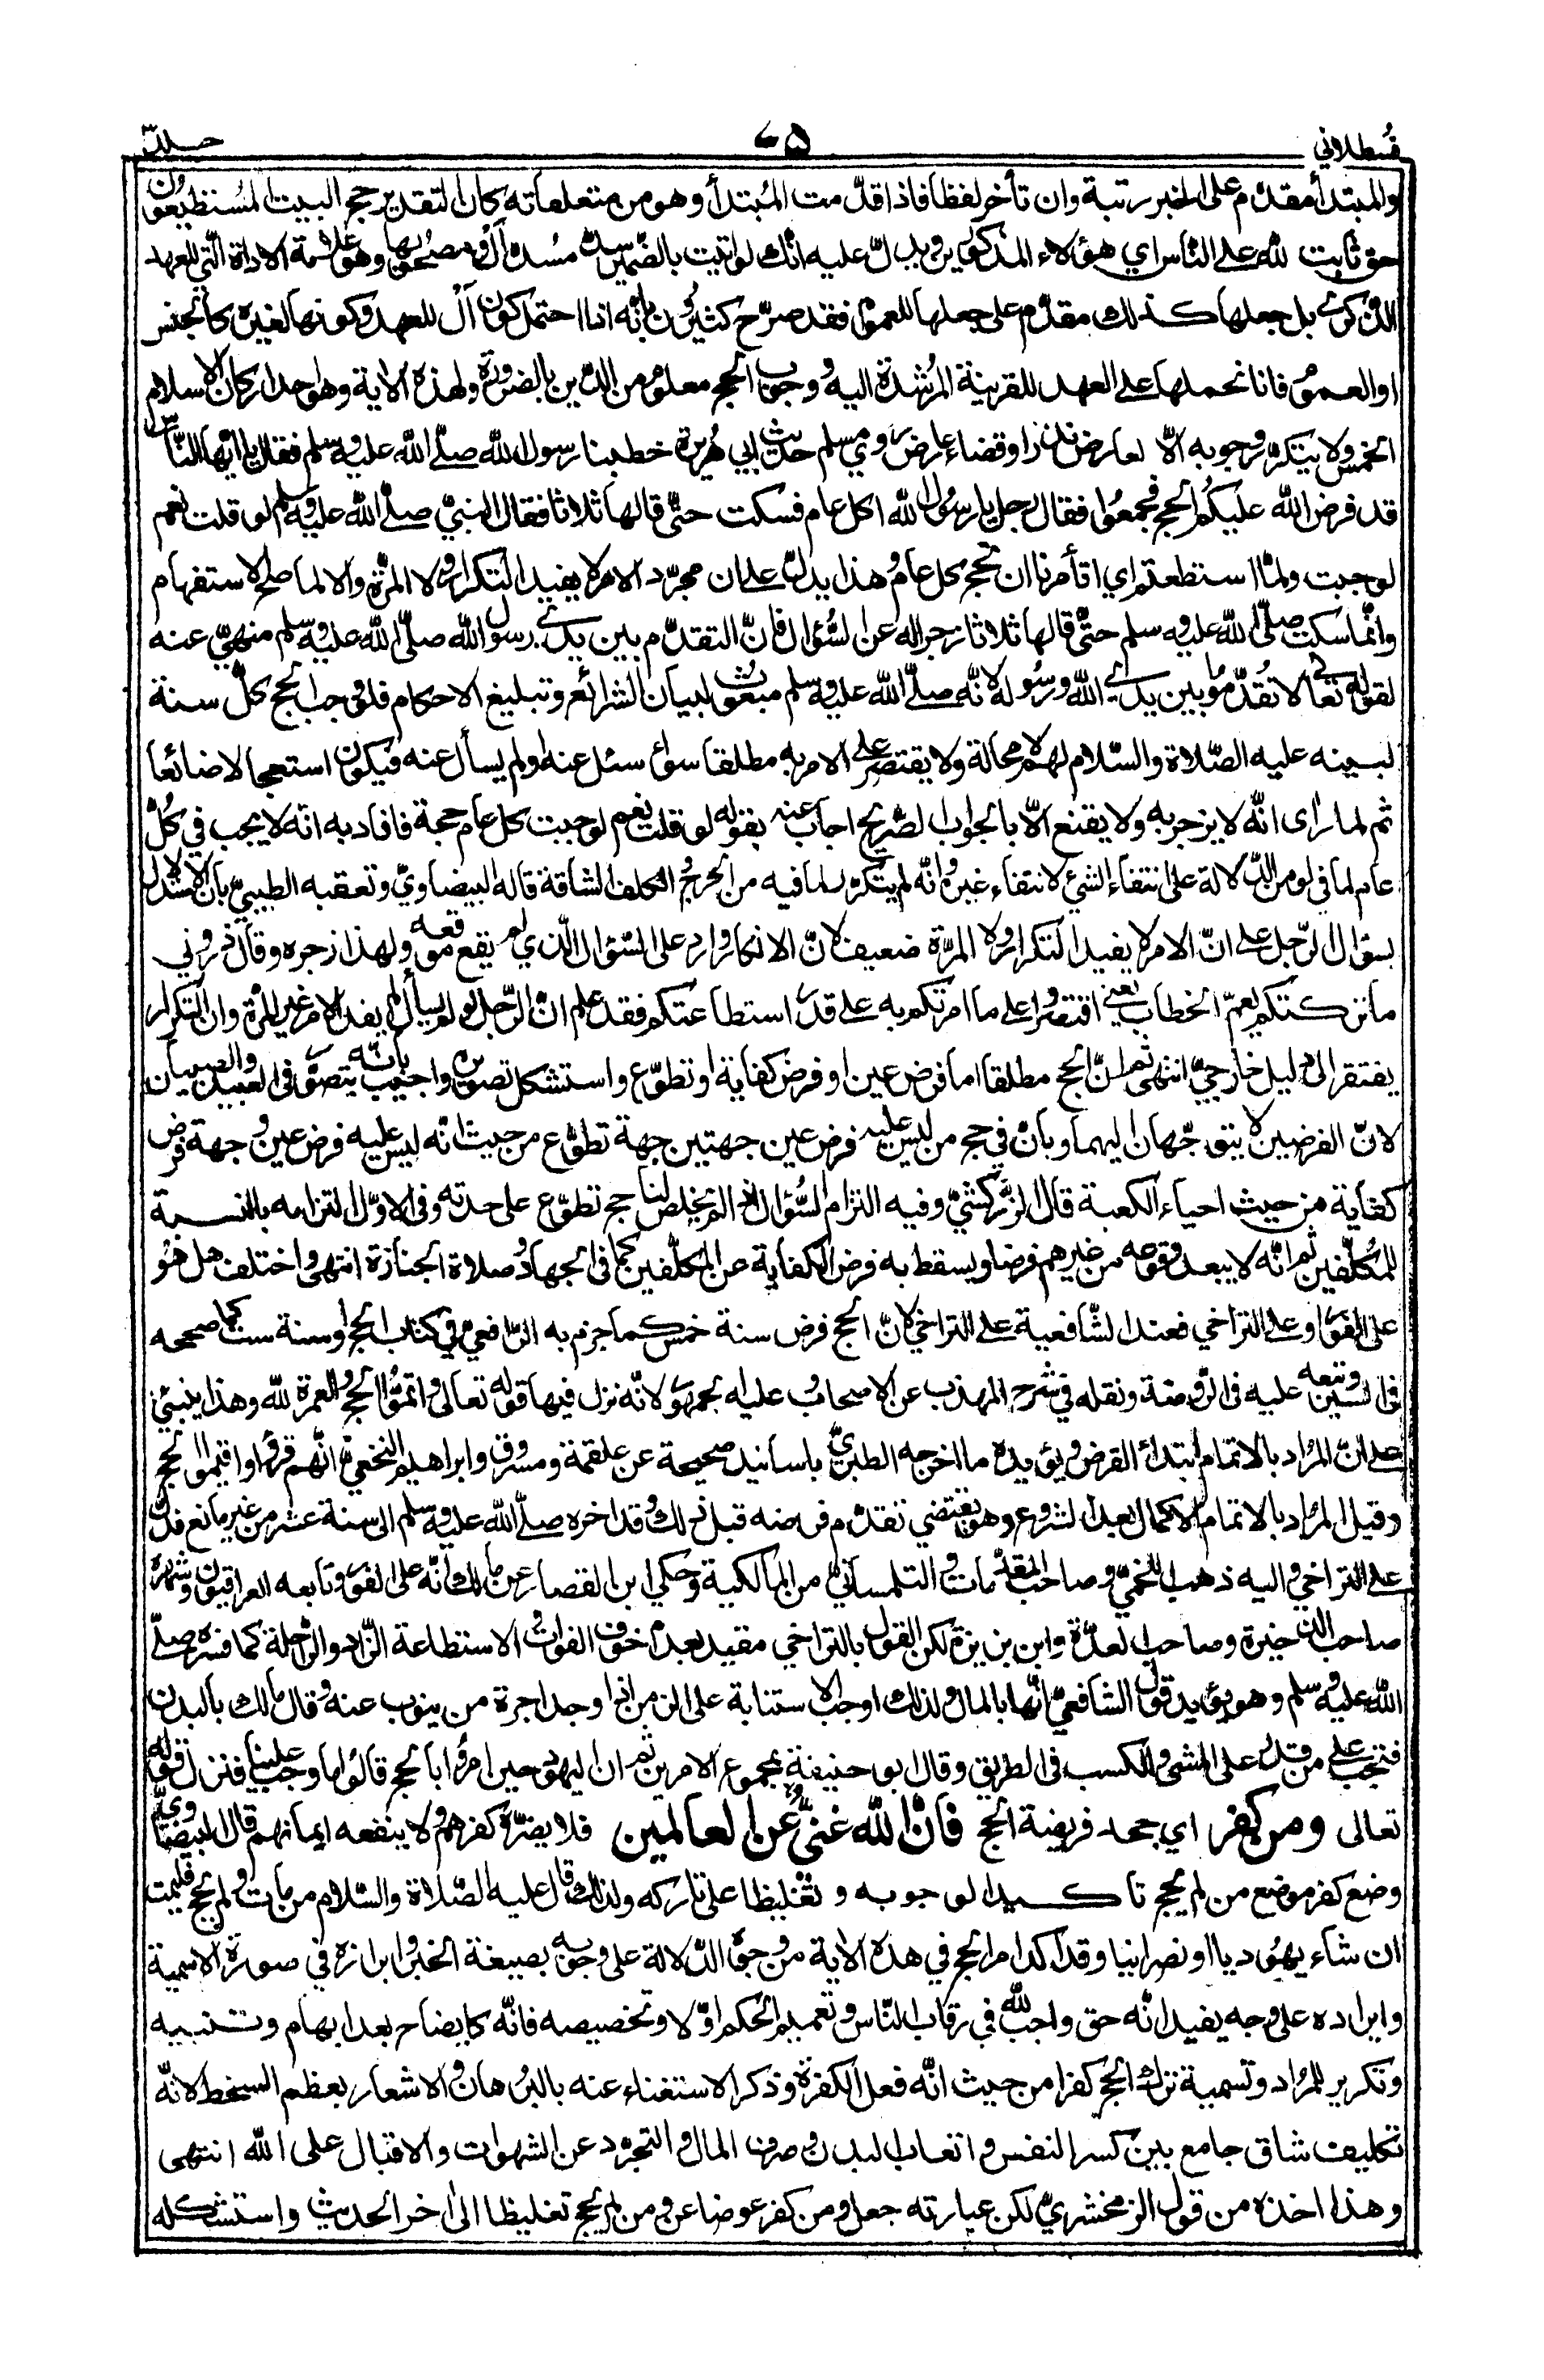 قسطلاني ٥ جلد٣
والمبتدأ مقدّم على الخبر رتبة وان تأخر لفظا فاذا قدّمت المُبتدأ وهو من متعلقاته كان التقدير حج البيت المُستطيعون
حق ثابت لله على الناس اي هؤلاء المذكورين ويدلّ عليه انك لو اتيت بالضمير سدّ مسدّ أل ومصحوبها وهو علامة الاداة الّتي للعهد
الذكري بل جعلها كذلك مقدّم على جعلها للعموم فقد صرّح كثيرون بأنّه اذا احتمل كون أل للعهد وكونها لغيره كالجنس
او العموم فانا نحملها على العهد للقرينة المُرشدة اليه ووجوب الحج معلوم من الدّين بالضرورة ولهذه الاية وهو احد اركان الاسلام
الخمس ولا يتكرّر وجوبه الّا لعارض نذر او قضاء عارض وفي مسلم حديث ابي هُريرة خطبنا رسول الله صلّى الله عليه وسلم فقال يا ايّها النّاس
قد فرض الله عليكُم الحج فحجّوا فقال رجل يا رسُول الله اكل عام فسكت حتّى قالها ثلاثا فقال النبيّ صلّى الله عليه وسلم لو قلت نعم
لوجبت ولما استطعتم اي اتأمرنا ان نحج كل عام وهذا يدلّ على ان مجرّد الامر لا يفيد التكرار ولا المرّة والا لما صح الاستفهام
وانّما سكت صلّى الله عليه وسلم حتّى قالها ثلاثا زجرا له عن السُّؤال فانّ التقدّم بين يدي رسول الله صلّى الله عليه وسلم منهيّ عنه
لقوله تعالى لا تُقدّموا بين يدي الله ورسُوله لانّه صلّى الله عليه وسلم مبعوث لبيان الشرائع وتبليغ الاحكام فلو وجب الحج كلّ سنة
لبينه عليه الصّلاة والسّلام لهم لا محالة ولا يقتصر على الامر به مطلقا سواء سئل عنه او لم يسأل عنه فيكون استعجالا ضائعا
ثم لما رأى انّه لا ينزجر به ولا يقنع الّا بالجواب الصّريح اجاب عنه بقوله لو قلت نعم لوجبت كل عام حجة فافاد به انّه لا يجب في كُلّ
عام لما في لو من الدّلالة على انتفاء الشئ لانتفاء غيره وانّه لم يتكرّر لما فيه من الحرج والكلف الشاقة قاله البيضاويّ وتعقبه الطيبيّ بان الاستدلال
بسؤال الرّجل على انّ الامر لا يفيد التكرار ولا المرّة ضعيف لانّ الانكار وارد على السّؤال الّذي لم يقع موقعه ولهذا زجره وقال ذروني
ما تركتكم يعمّ الخطاب يعني اقتصروا على ما امرتكم به على قدر استطاعتكم فقد علم انّ الرّجل لو لم يسأل لم يفد الامر غير المرّة وان التكرار
يفتقر الى دليل خارجيّ انتهى ثم انّ الحج مطلقا اما فرض عين او فرض كفاية او تطوّع واستشكل تصويره واجيب بأنّه يتصوّر في العبيد والصبيان
لانّ الفرضين لا يتوجّهان اليهما وبانّ في حج من ليس عليه فرض عين جهتين جهة تطوّع من حيث انّه ليس عليه فرض عين وجهة فرض
كفاية من حيث احياء الكعبة قال الزّركشيّ وفيه التزام السُّؤال اذ لم يخلص لنا حج تطوّع على حدته وفي الاوّل التزامه بالنسبة
للمُكلّفين ثم انّه لا يبعد وقوعه من غيرهم فرضا ويسقط به فرض الكفاية عن المكلّفين كما في الجهاد وصلاة الجنازة انتهى واختلف هل هُو
على الفور او على التراخي فعند الشّافعية على التراخي لانّ الحج فرض سنة خمس كما جزم به الرّافعيّ في كتاب الحج او سنة ست كما صححه
في السّير وتبعه عليه في الرّوضة ونقله في شرح المهذب عن الاصحاب وعليه الجمهور لانّه نزل فيها قوله تعالى واتمّوا الحج والعمرة لله وهذا ينبئ
على انّ المُراد بالاتمام ابتداء الفرض ويؤيده ما اخرجه الطبريّ باسانيد صحيحة عن علقمة ومسروق وابراهيم النخعيّ انّهم قرؤا واقيموا الحج
وقيل المُراد بالاتمام الاكمال بعد الشروع وهو يقتضي تقدّم فرضه قبل ذلك وقد اخره صلّى الله عليه وسلم الى سنة عشر من غير مانع فدلّ
على التراخي واليه ذهب اللخميّ وصاحب المقدّمات والتلمسانيّ من المالكية وحكى ابن القصار عن مالك انّه على الفور وتابعه العراقيون وشهره
صاحب الذخيرة وصاحب العدّة وابن بزيزة لكن القول بالتراخي مقيد بعدم خوف الفوات والاستطاعة الزّاد والرّاحلة كما فسره صلّى
الله عليه وسلم وهو يؤيد قول الشافعيّ انّها بالمال ولذلك اوجب الاستنابة على الزمن اذا وجد اجرة من ينوب عنه وقال مالك بالبدن
فتجب على من قدر على المشي والكسب في الطريق وقال ابو حنيفة بمجموع الامرين ثم ان اليهود حين امرُوا بالحج قالُوا ما وجب علينا فنزل قوله
تعالى ومن كفر اي جحد فريضة الحج فانّ الله غنيّ عن العالمين فلا يضرّه كفرهم ولا ينفعه ايمانهم قال البيضاويّ
وضع كفر موضع من لم يحج تأكيدا لوجوبه وتغليظا على تاركه ولذلك قال عليه الصّلاة والسّلام من مات ولم يحج فليمت
ان شاء يهُوديا او نصرانيا وقد اكد امر الحج في هذه الاية من وجوه الدّلالة على وجوبه بصيغة الخبر وابرازه في صورة الاسمية
وايراده على وجه يفيد انّه حق واجب لله في رقاب النّاس وتعميم الحكم اوّلا وتخصيصه فانّه كايضاح بعد ابهام وتثنيه
وتكرير للمُراد وتسمية ترك الحج كفرا من حيث انّه فعل الكفرة وذكر الاستغناء عنه بالبُرهان والاشعار بعظم السخط لانّه
تكليف شاق جامع بين كسر النفس واتعاب البدن وصرف المال والتجرّد عن الشهوات والاقبال على الله انتهى
وهذا اخذه من قول الزمخشريّ لكن عبارته جعل ومن كفر عوضا عن ومن لم يحج تغليظا الى اخر الحديث واستشكله